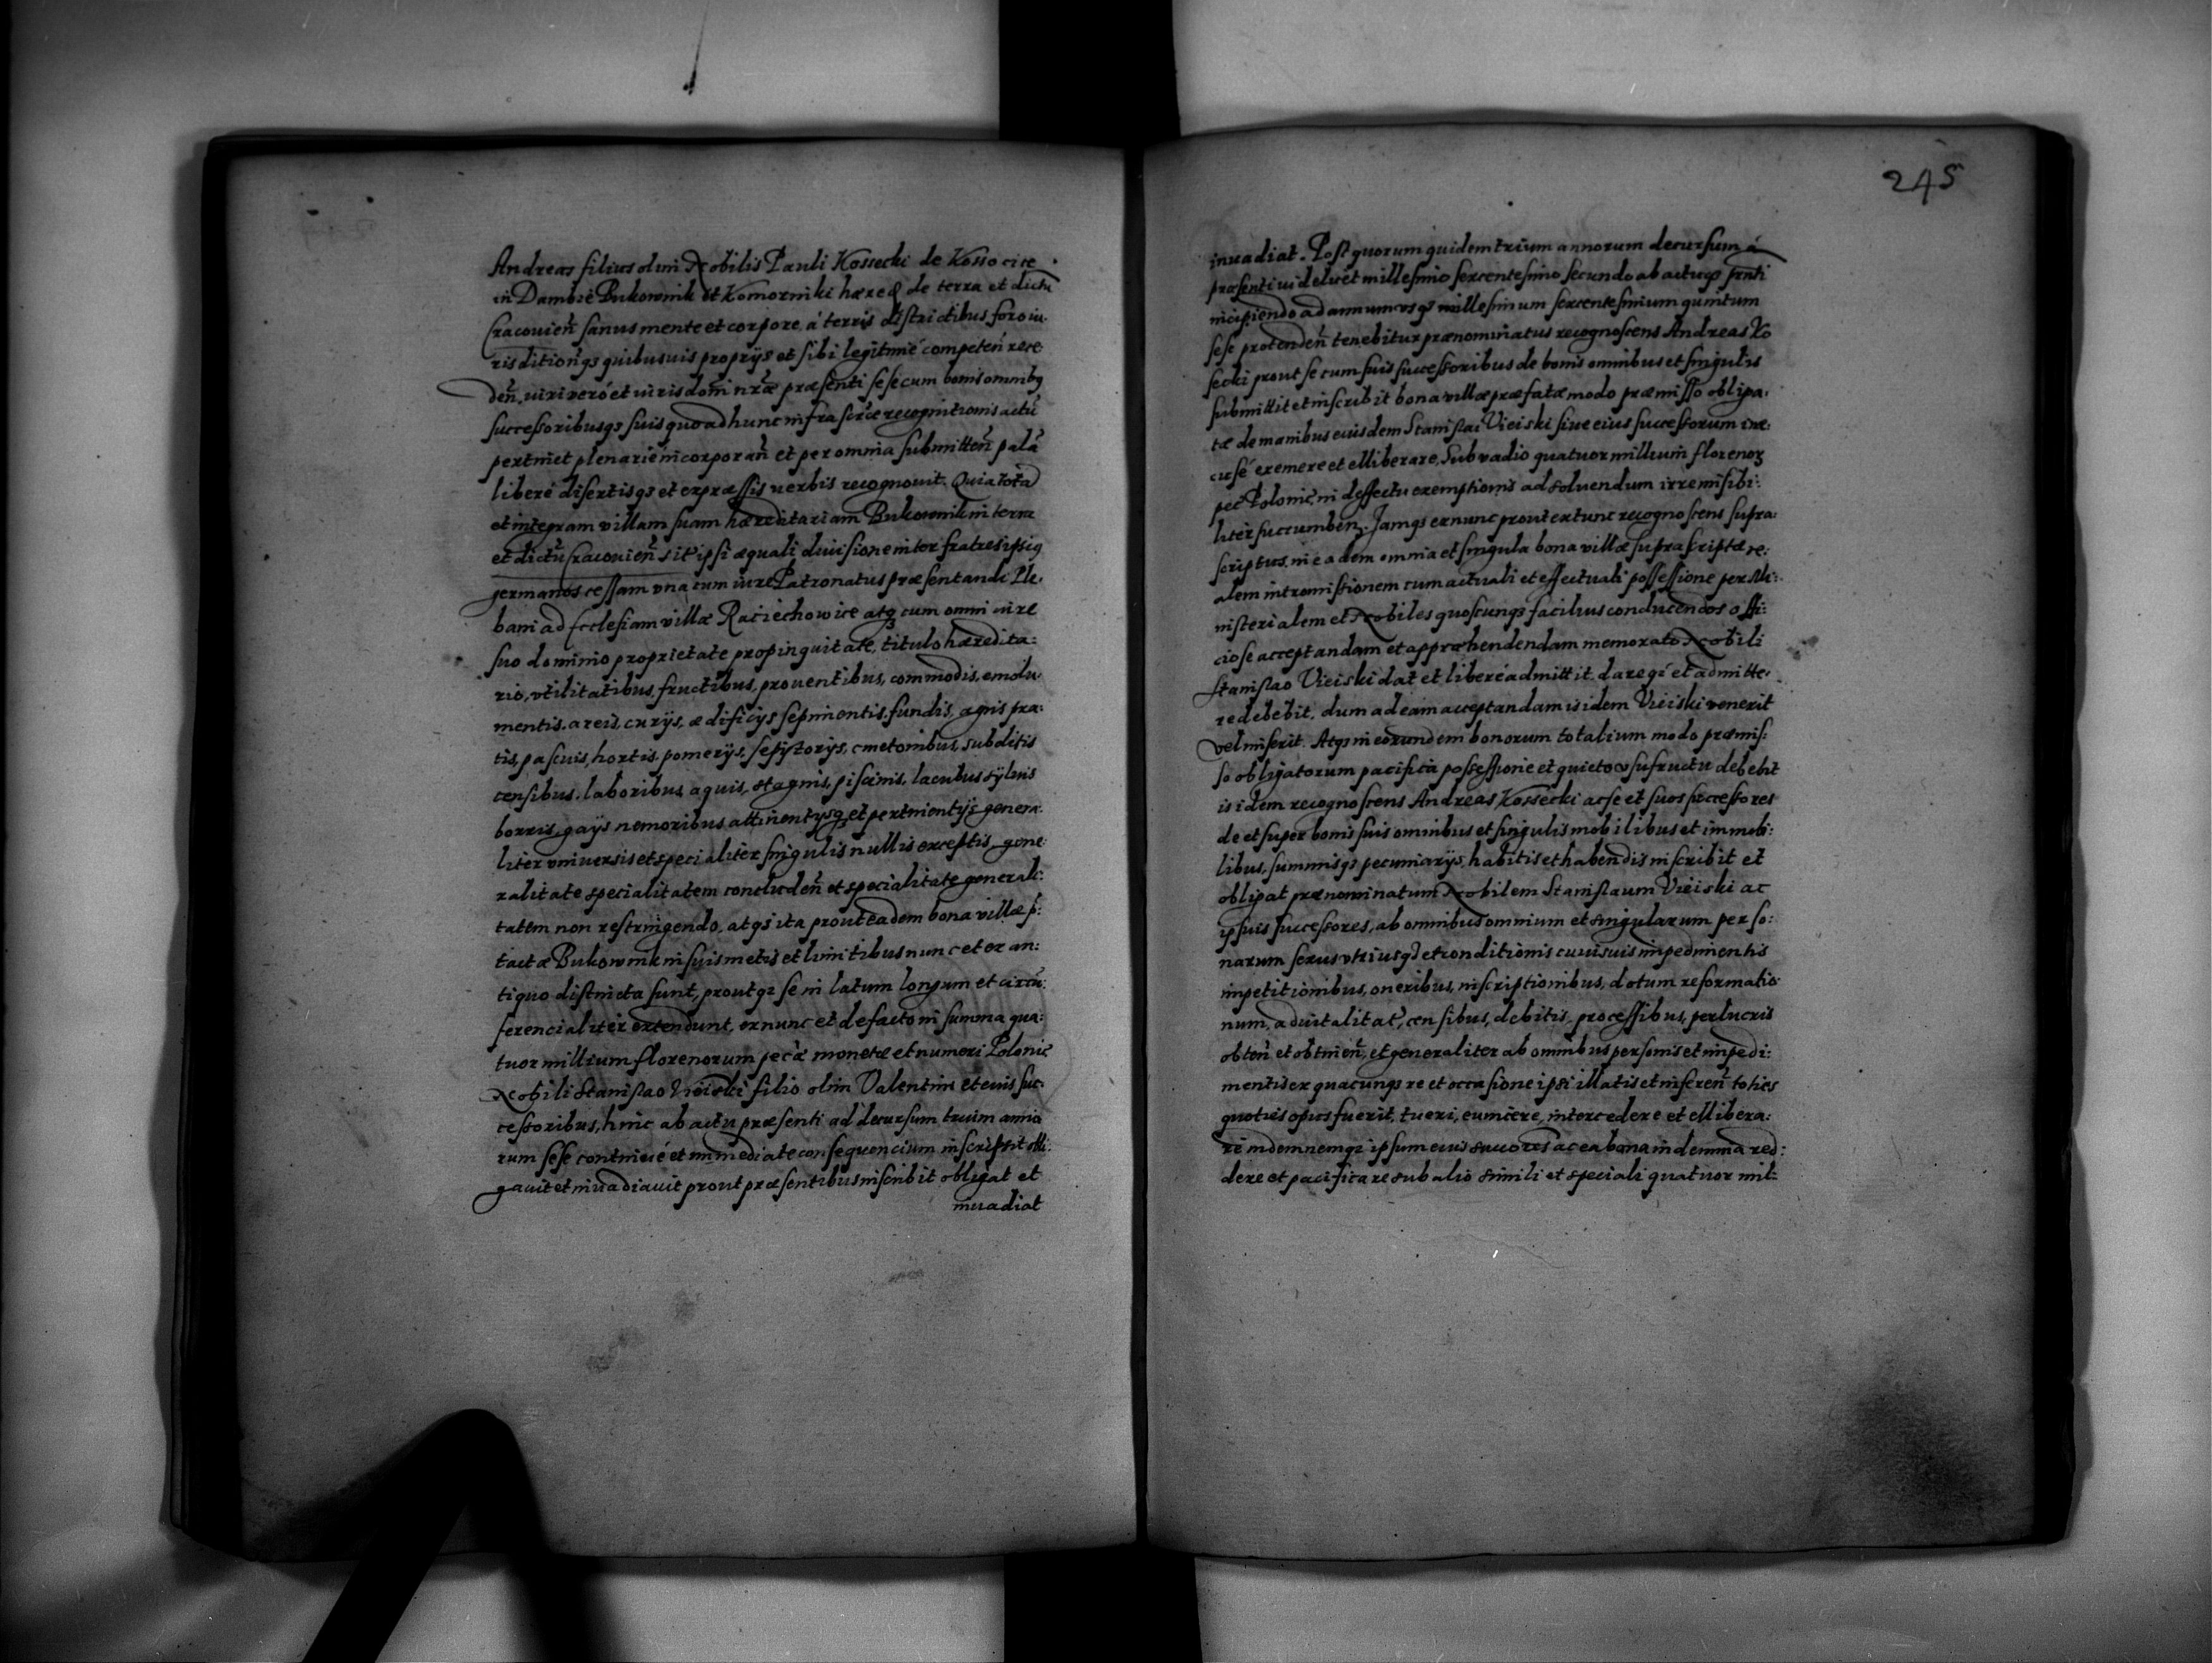 Andreas filius olim Nobilis Pauli Kossecki de Kossocice
in Dambie Bukownik et Komorniki hæres de terra et dictu
Cracouien̄ sanus mente et corpore, á terris districtibus foro iu
risdition̄qs quibusuis proprijs et sibi legitimé competen̄ rece
den̄, uiri veró et uiris dom̄ nræ præsenti sese cum bonis omnibq
successoribusqs suis quo ad hunc infra scrae recognitionis actū
pertinet plenarié incorporan̄ et per omnia submitten̄ palā
liberé disertisqs et expræssis uerbis recognouit. Quia tota
et integram villam suam hæreditariam Bukownik in terra
et dictū Cracouien̄ sit ipsi æquali diuisione inter fratres ipsiq
germanos cessam vna cum iure Patronatus præsentandi Ple:
bani ad Ecclesiam villæ Raciechowice atq cum omni iure
suo dominio proprietate propinguitate, titulo hæredita:
rio, vtilitatibus, fructibus, prouentibus, commodis, emolu
mentis, areis, curijs, ædificijs sepimentis, fundis, agris pra:
tis, pascuis, hortis, pomerijs, cmetonibus, subditis
censibus, laboribus, aquis, stagnis, piscinis, lacubus syluis
borris, gays nemoribus attinentysq et pertinentijs genera
liter vniuersis et specialiter singulis nullis exceptis, gene
ralitate specialitatem concluden̄ et specialitate generali:
tatem non restringendo, atqs ita prout eadem bona villæ p:
tactæ Bukownik in suis metis et limitibus nunc et ex an:
tiquo distincta sunt, proutqs se in latum longum et circū:
ferencialiter extendunt, exnunc et de facto in summa qua:
tuor millium florenorum pecæ monetæ et numeri Polonic
Nobili Stanislao Vieiski filio olim Valentini et euis suc
cessoribus, hinc ab actu præsenti ad decursum trium anno
rum sese continué et immediate consequencium inscripsit obli:
gauit et inuadiauit prout præsentibus inscribit obligat et
inuadiat
245
inuadiat. Post quorum quidem trium annorum decursum á
præsenti uidelicet millesimo sexcentesimo secundo ab actuqs prnti
incipiendo ad annum vsqs millesimum sexcentesimum quintum
sese protenden̄ tenebitur prænominatus recognoscens Andreas Ko
secki prout se cum suis successoribus de bonis omnibus et singulis
submittit et inscribit bona villæ præfatæ modo præmisso obliga:
tæ de manibus euisdem Stanislai Vieiski siue eius successorum
exemere et elliberare, Sub vadio quatuor millium florenoꝝ
pec Polonic, in deffectu exemptionis ad soluendum irremisibi:
liter succumben. Jamqs exnunc prout extunc recognoscens supra:
scriptus, in eadem omnia et singula bona villæ supra scriptæ re:
alem intromissionem cum actuali et effectuali possessione per Mi:
nisterialem et Nobiles quoscunqs facilius conducendos offi:
ciose acceptandam et apprœhendendam memorato Nobili
Stanislao Vieiski dat et liberé admittit, dareqé et admitte:
re debebit, dum ad eam acceptandam is idem Vieiski venerit
vel miserit. Atqs in eorundem bonorum totalium modo præmis:
so obligatorum pacifica possessione et quieto vsufructu debebit
is idem recognoscens Andreas Kossecki ac se et suos successores
de et super bonis suis omnibus et singulis mobilibus et immobi:
libus, summisqs pecuniarijs, habitis et habendis inscribit et
obligat prænominatum Nobilem Stanislaum Vieiski ac
ipsuis successores, ab omnibus omnium et singularum perso:
narum sexus vtriusq et conditionis cuuisuis impedimentis
impetitionibus, oneribus, inscriptionibus, dotum reformatio
num, aduitalitat, censibus, debitis, processibus, perlucris
obten̄ et obtinen̄, et generaliter ab omnibus personis et impedi:
mentis ex quacunqs re et occasione ipsi illatis et inferen̄ toties
quoties opus fuerit, tueri, euincere, intercedere et ellibera:
re indemnemqs ipsum euis succores ac ea bona indemnia red:
dere et pacificare sub alio simili et speciali quatuor mil: